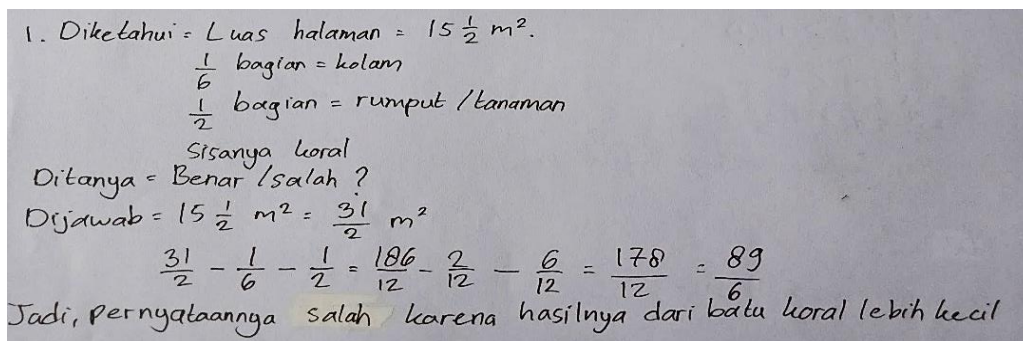 1. Diketahui = Luas halaman = 15 1/2 m².
1/6 bagian = kolam
1/2 bagian = rumput / tanaman
Sisanya koral
Ditanya = Benar / salah ?
Dijawab = 15 1/2 m² = 31/2 m²
31/2 - 1/6 - 1/2 = 186/12 - 2/12 - 6/12 = 178/12 = 89/6
Jadi, pernyataannya salah karena hasilnya dari batu koral lebih kecil